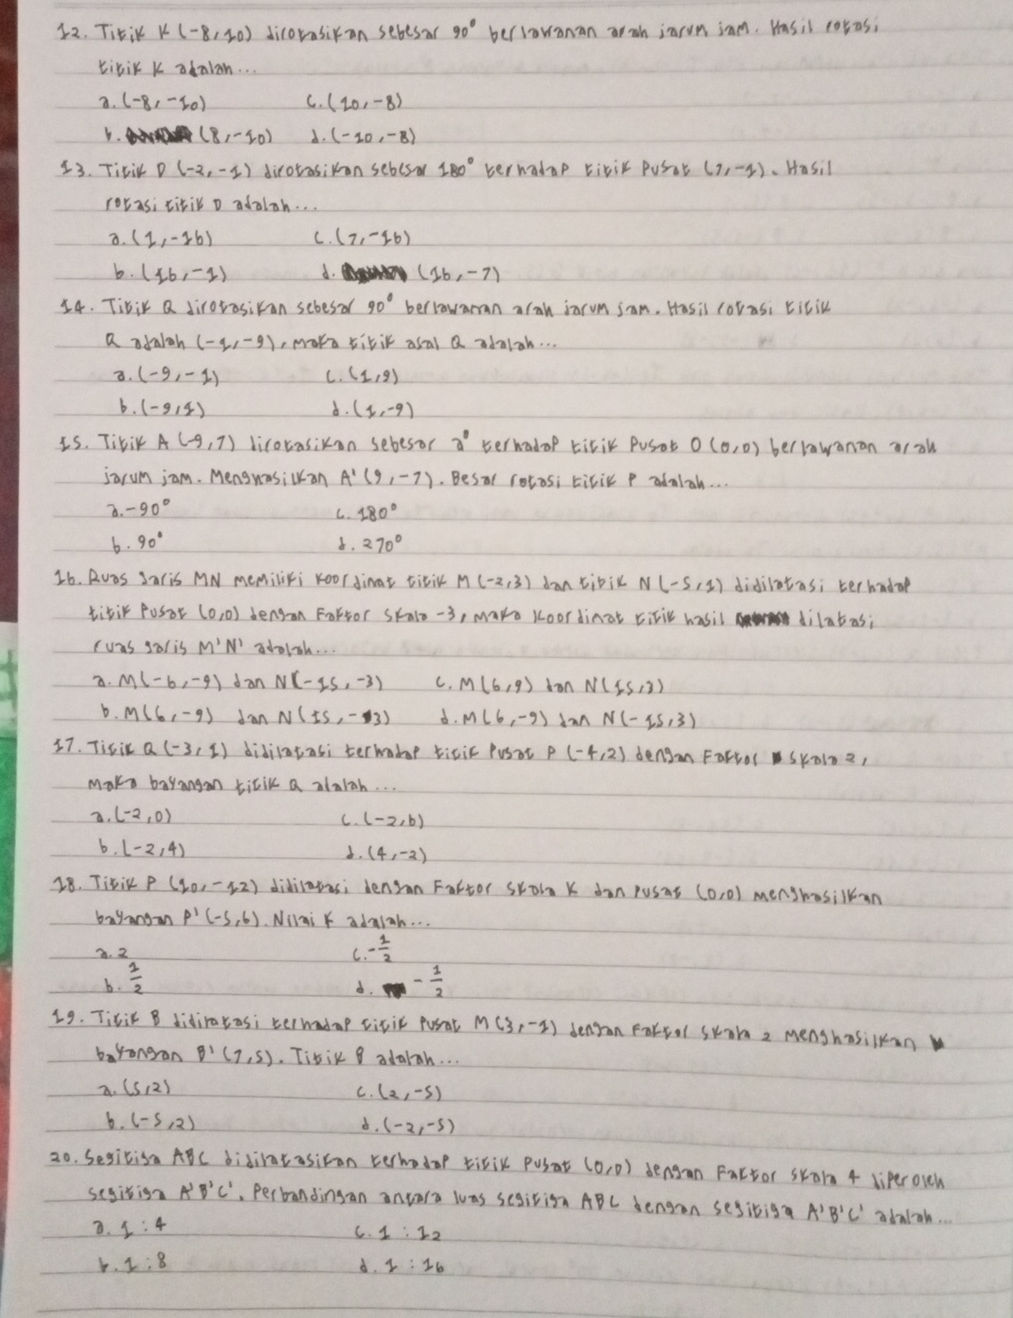 12. Titik K (-8,10) dirotasikan sebesar 90° berlawanan arah jarum jam. Hasil rotasi
titik K adalah...
a. (-8,-10) c. (10,-8)
b. (8,-10) d. (-10,-8)
13. Titik D (-2,-1) dirotasikan sebesar 180° terhadap titik Pusat (7,-1). Hasil
rotasi titik D adalah...
a. (1,-16) c. (7,-16)
b. (16,-1) d. (16,-7)
14. Titik Q dirotasikan sebesar 90° berlawanan arah jarum jam. Hasil rotasi titik
Q adalah (-1,-9), maka titik asal Q adalah...
a. (-9,-1) c. (1,9)
b. (-9,1) d. (1,-9)
15. Titik A (-9,7) dirotasikan sebesar a° terhadap titik Pusat O (0,0) berlawanan arah
jarum jam. Menghasilkan A' (9,-7). Besar rotasi titik P adalah...
a. -90° c. 180°
b. 90° d. 270°
16. Ruas garis MN memiliki koordinat titik M (-2,3) dan titik N (-5,1) didilatasi terhadap
titik Pusat (0,0) dengan Faktor skala -3, maka koordinat titik hasil dilatasi
ruas garis M'N' adalah...
a. M(-6,-9) dan N(-15,-3) c. M(6,9) dan N(15,3)
b. M(6,-9) dan N(15,-3) d. M(6,-9) dan N(-15,3)
17. Titik Q (-3,1) didilatasi terhadap titik Pusat P (-4,2) dengan Faktor skala 2,
maka bayangan titik Q alalah...
a. (-2,0) c. (-2,6)
b. (-2,4) d. (4,-2)
18. Titik P (10,-12) didilatasi dengan Faktor skala K dan Pusat (0,0) menghasilkan
bayangan P' (-5,6). Nilai K adalah...
a. 2 c. -1/2
b. 1/2 d. -1/2
19. Titik B didilatasi terhadap titik Pusat M (3,-1) dengan Faktor skala 2 menghasilkan
bayangan B' (7,5). Titik B adalah...
a. (5,2) c. (2,-5)
b. (-5,2) d. (-2,-5)
20. Segitiga ABC didilatasikan terhadap titik Pusat (0,0) dengan Faktor skala 4 diperoleh
segitiga A'B'C'. Perbandingan antara luas segitiga ABC dengan segitiga A'B'C' adalah...
a. 1 : 4 c. 1 : 12
b. 1 : 8 d. 1 : 16